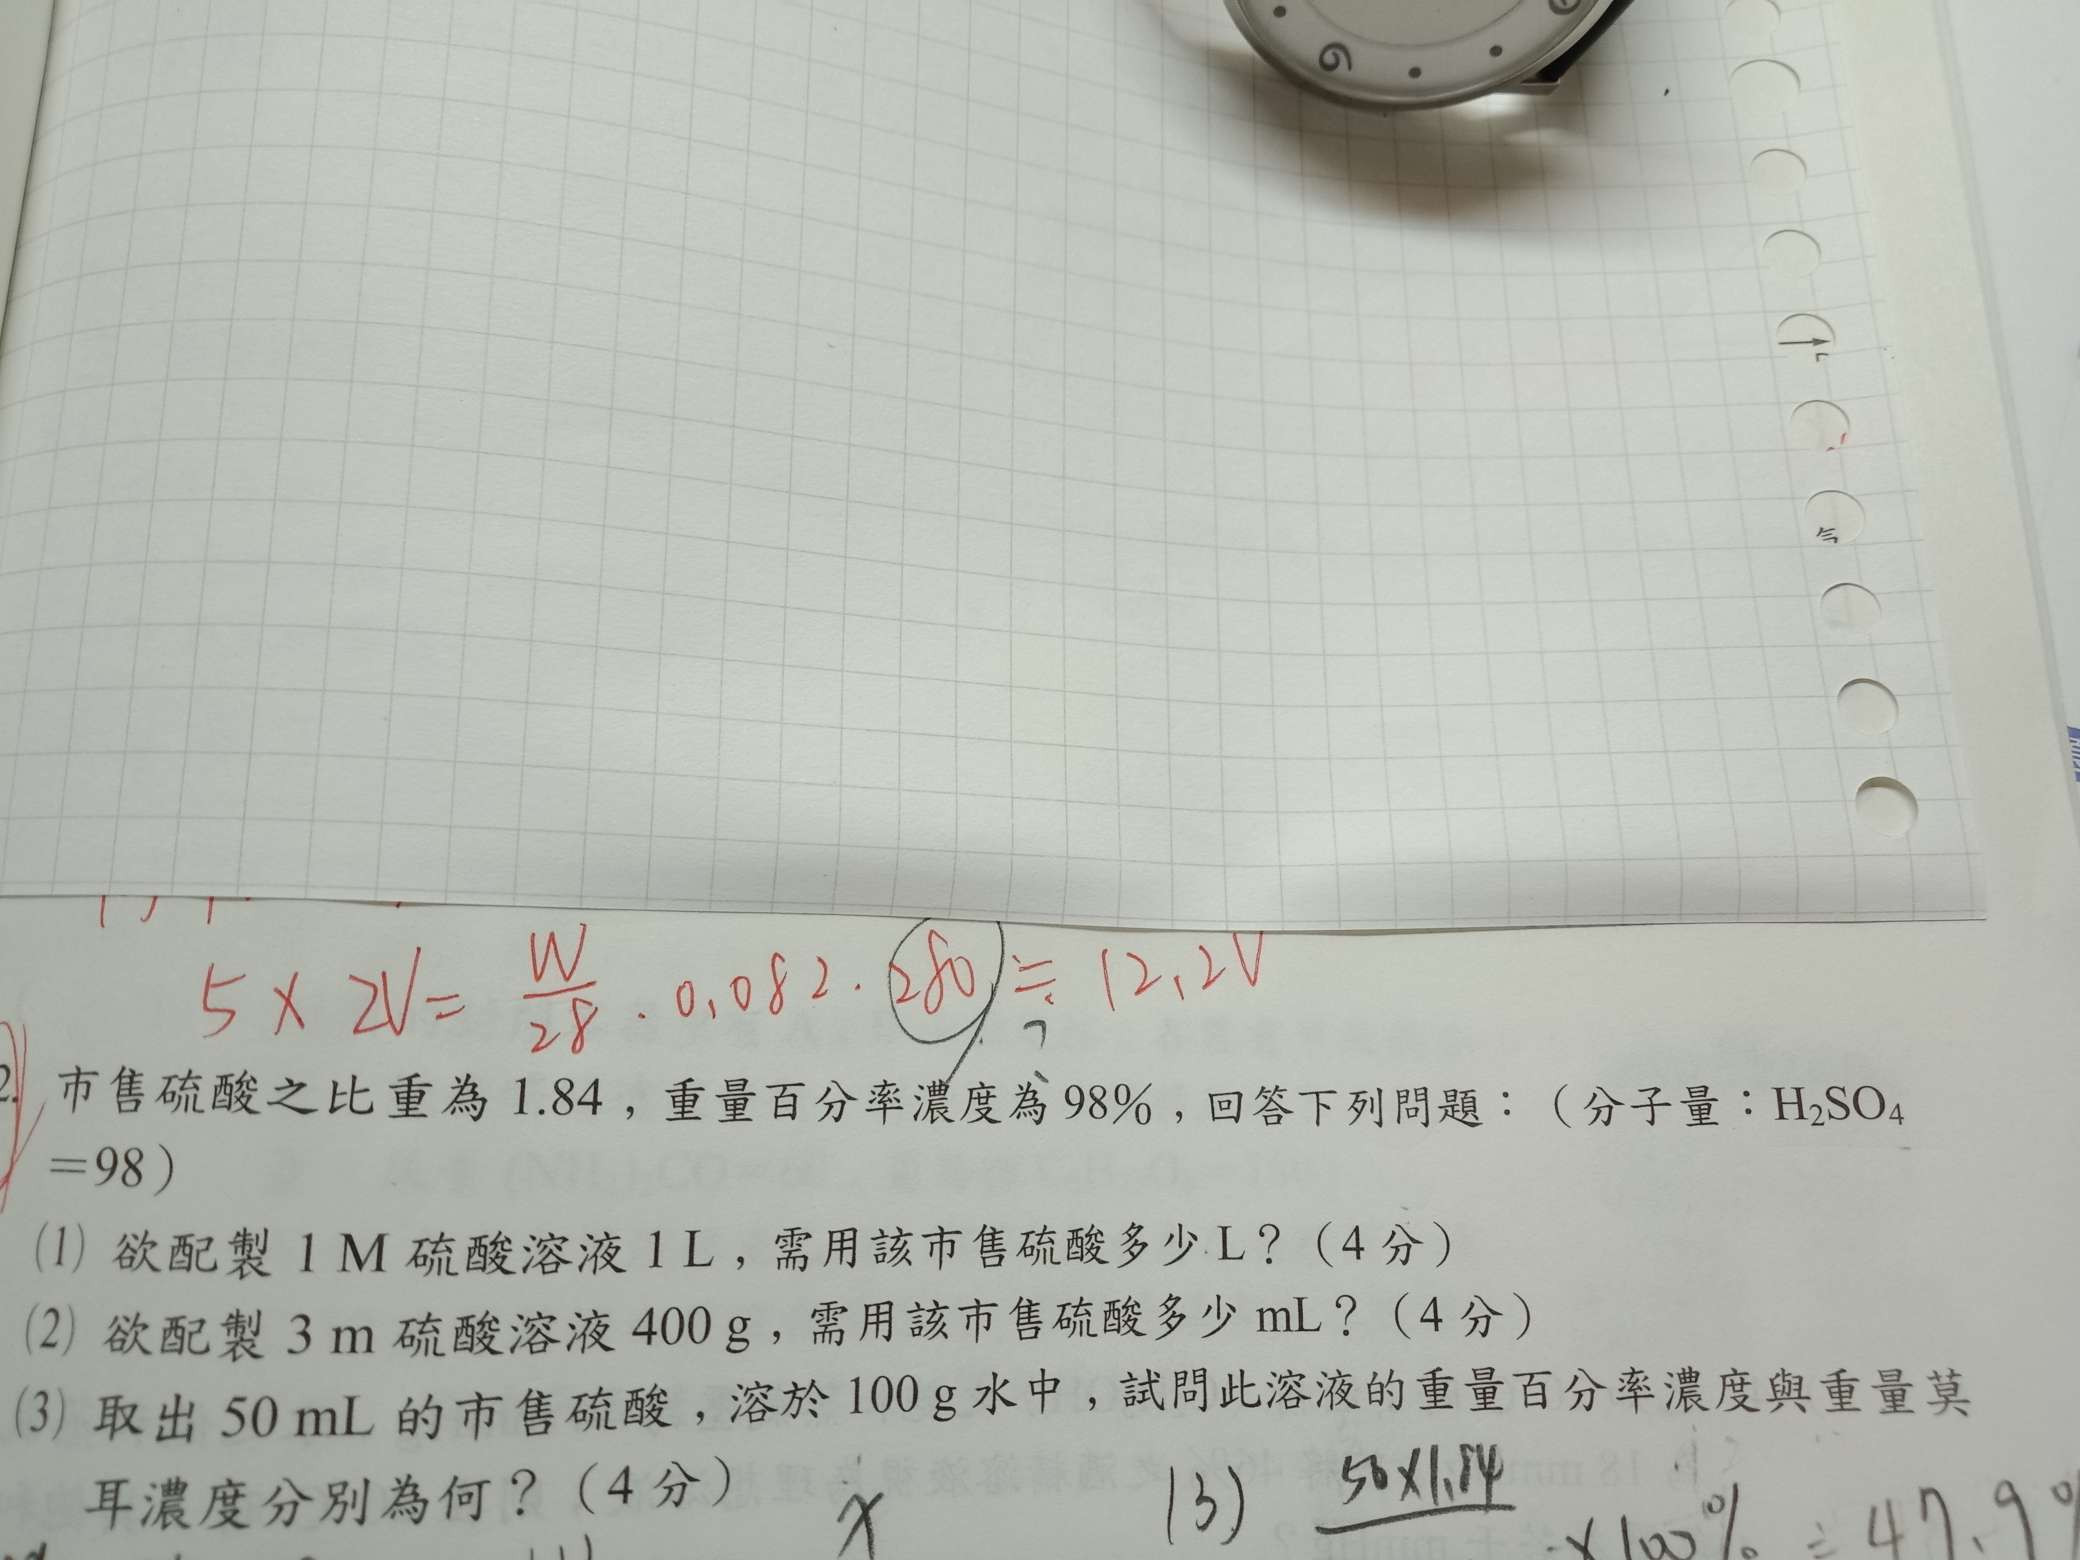 5 × 2V = W/28 . 0.082 . 280 ≒ 12.2V
2. 市售硫酸之比重為 1.84，重量百分率濃度為98%，回答下列問題：（分子量：H₂SO₄
=98）
(1) 欲配製 1 M 硫酸溶液 1 L，需用該市售硫酸多少 L？（4 分）
(2) 欲配製 3 m 硫酸溶液 400 g，需用該市售硫酸多少 mL？（4 分）
(3) 取出 50 mL 的市售硫酸，溶於 100 g 水中，試問此溶液的重量百分率濃度與重量莫
耳濃度分別為何？（4 分）
(3) 50×1.84
×100% ≒ 47.9%